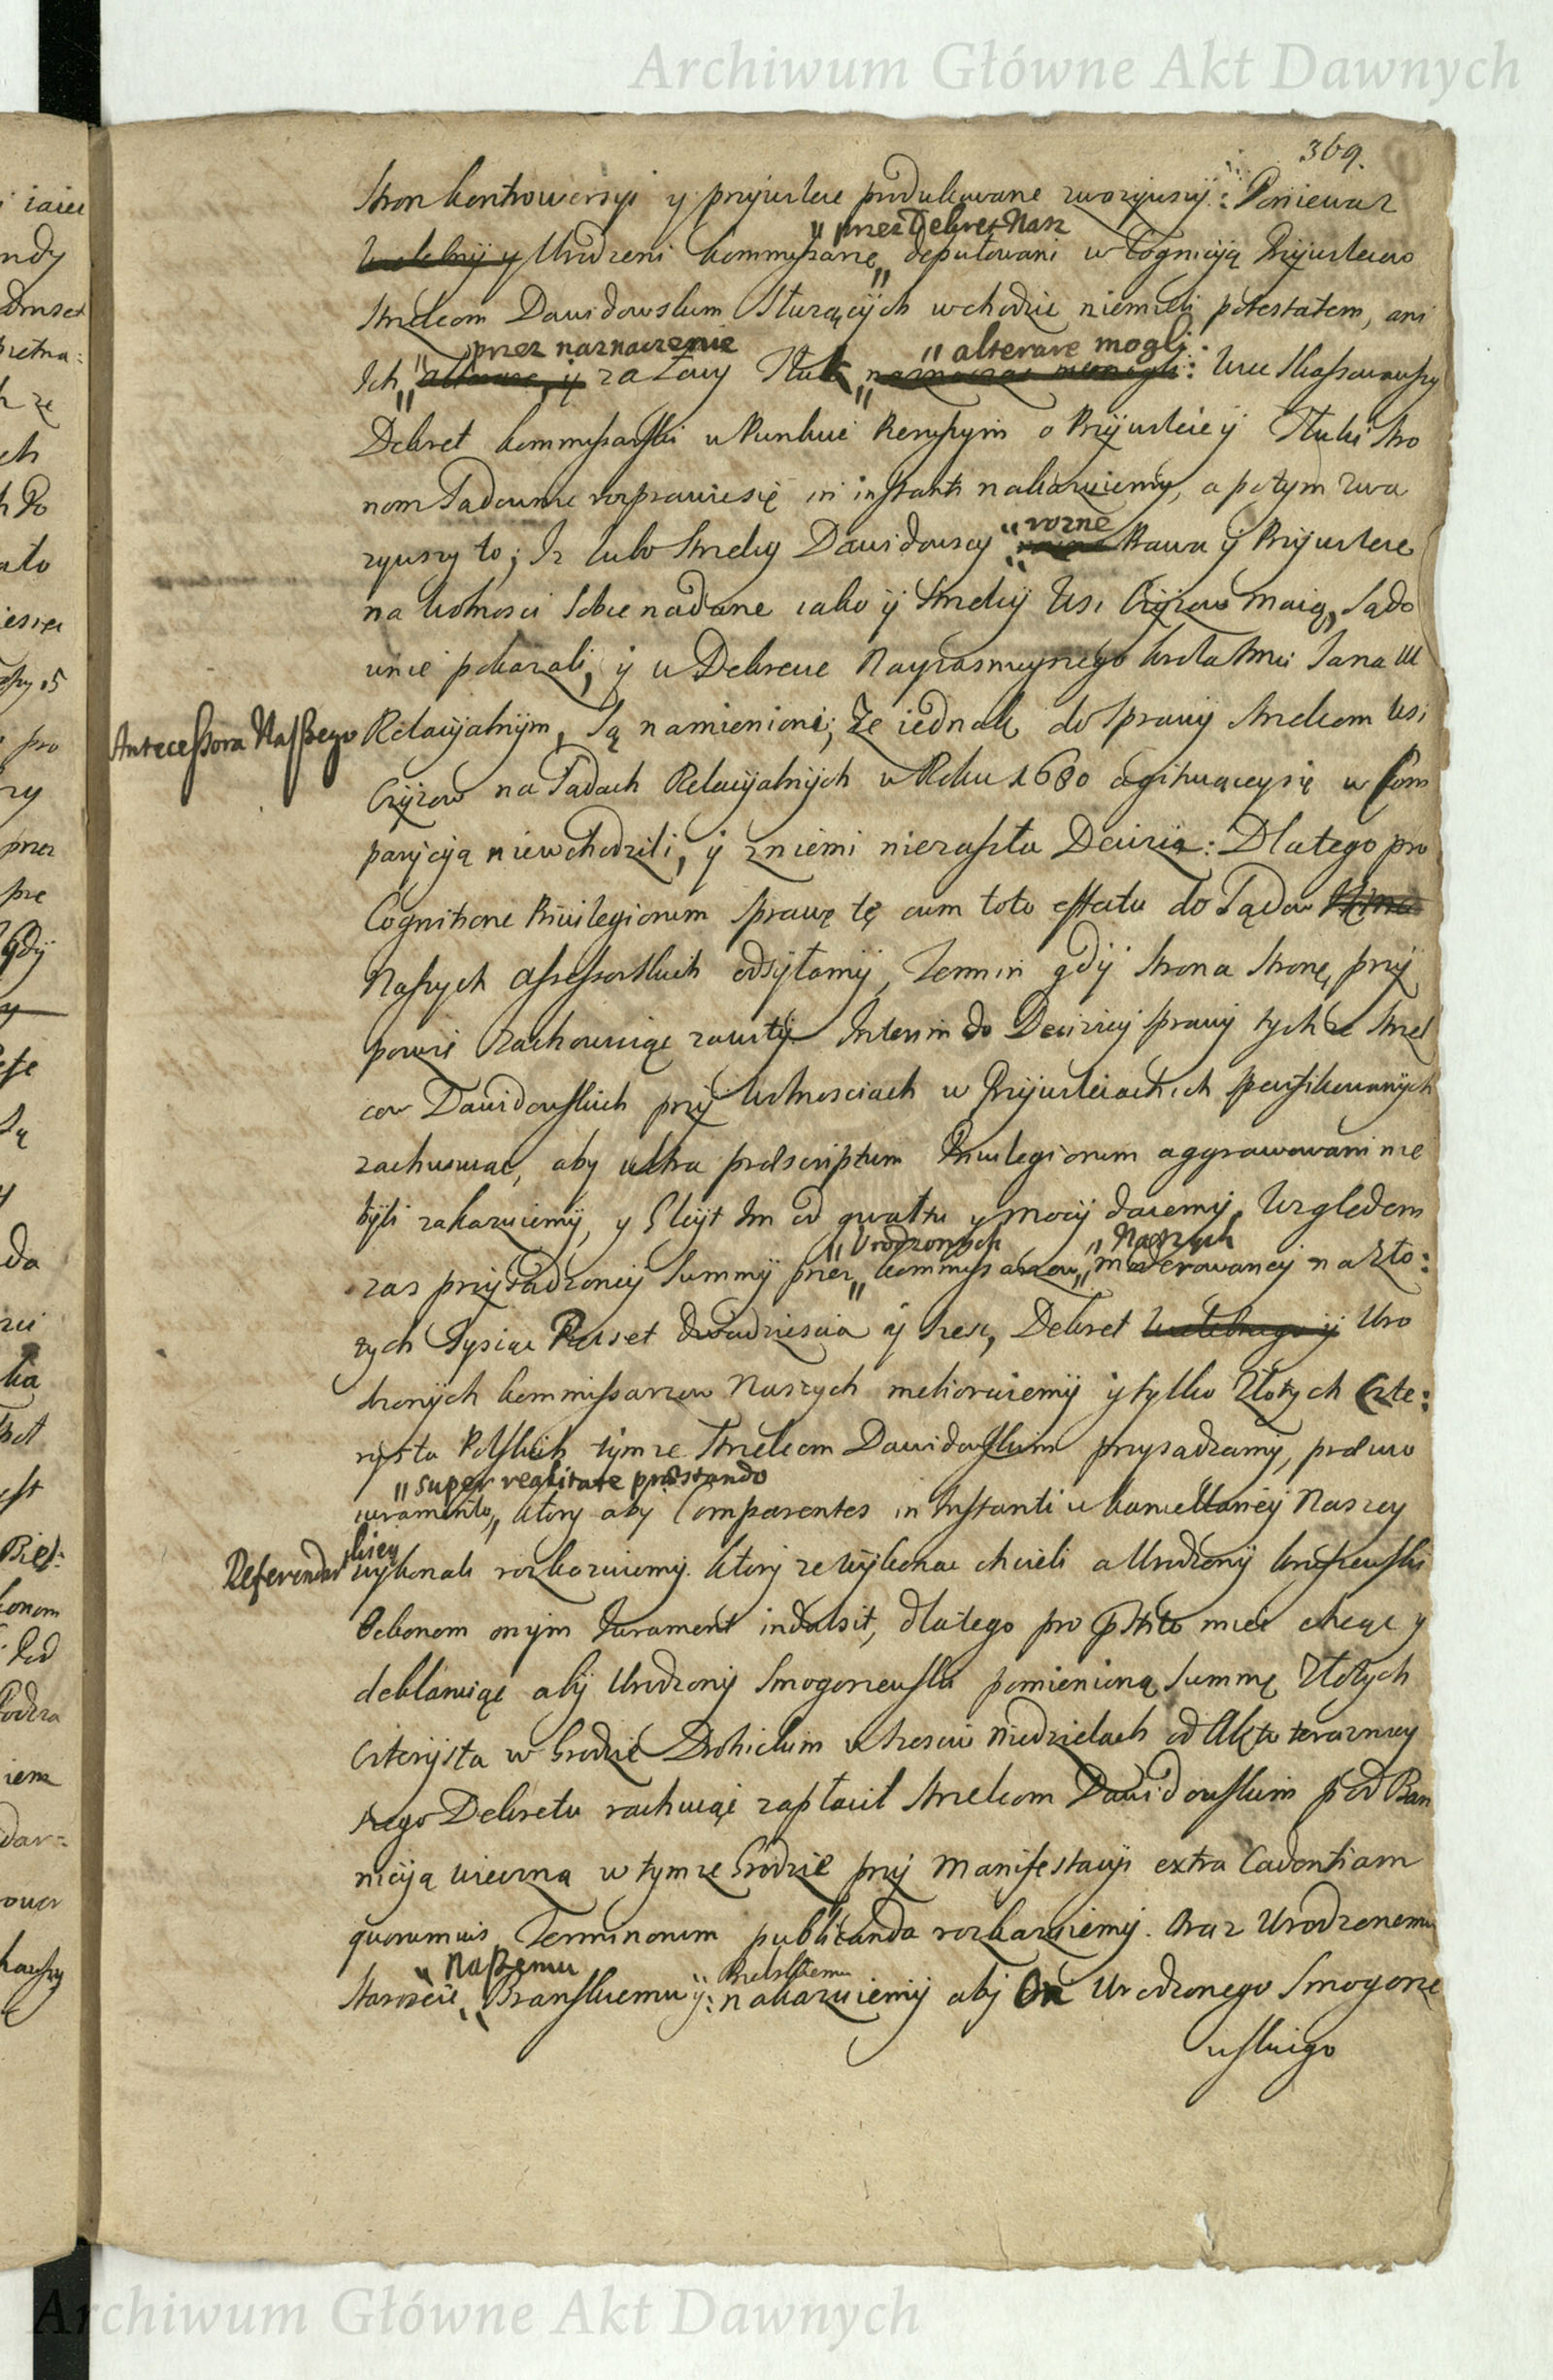 Archiwum Główne Akt Dawnych
369.
Stron kontrowersyi y przywileie produkowane zwazywszy: Poniewaz
"przez Dekret Nasz
Wielebny y Urodzeni kommissarze deputowani w Cognicyją Przywileiow
Strzelcom Dawidowskim słuzących wchodzic niemieli potestatem, ani
"przez naznaczenie "alterare mogli
Ich za Ławy Sluk: Wiec skassowawszy
Dekret kommissarski w Punkcie Pierwszym o Przywileie y Sluki Stro
nom Sadownie rozprawic się in instanti nakazuiemy, a potym zwa
zywszy to; Iz lubo Strzelcy Dawidowscy "rozne Prawa y Przywileie
na wolnosci sobie nadane iako y Strzelcy Wsi Czyzow maią, Sądo
wnie pokazali, y w Dekrecie Nayiasnieyszego Krola Jmci Jana III
Antecessora Naszego Relacyjalnym, są namienieni; Ze iednak do sprawy Strzelcom Wsi
Czyzow na Sądach Relacyjalnych w Roku 1680 agituiącey się w Com
parycyją niewchodzili, y z niemi niezaszła Decizia: Dlatego pro
Cognitione Privilegiorum sprawę tę cum toto effectu do Sądow
Naszych Assessorskich odsyłamy, Termin gdy Strona Stronę przy
powie zachowuiąc zawity. Interim do Deciziey sprawy tychze Strzel
cow Dawidowskich przy Wolnosciach w Przywileiach ich specifikowanych
zachowuiąc, aby ultra praescriptum Privilegiorum aggrawowani nie
byli zakazuiemy, y Gleyt Im od gwałtu y mocy daiemy. Względem
"Urodzonych "Naszych
zas przysądzoney Summy przez kommissarzow moderowaney na Zło:
tych Tysiąc Piecset dwadziescia y szesc, Dekret Wielebnego y Uro
dzonych kommissarzow Naszych melioruiemy y tylko Złotych Czte:
rysta Polskich tymze Strzelcom Dawidowskim przysadzamy, praevio
"super realitate praestando
iuramento, ktory aby Comparentes in Instanti w kancellaryey Naszey
Referendarskiey wykonali rozkazuiemy. ktory ze wykonac chcieli a Urodzony
Aebonom onym Jurament indulsit, dlatego pro praestito miec chcąc y
deklaruiąc aby Urodzony Smogorzewski pomienioną Summę Złotych
Czterysta w Grodzie Drohickim w szesciu Niedzielach od Aktu teraznieы
szego Dekretu rachuiąc zapłacił Strzelcom Dawidowskim pod Ban
nicyją wieczną w tymze Grodzie przy Manifestacyi extra Cadentiam
quorumvis Terminorum publicanda rozkazuiemy. Oraz Urodzonemu
"Naszemu Bielskiemu
Staroscie Branskiemu y: nakazuiemy aby On Urodzonego Smogorze
wskiego
Archiwum Główne Akt Dawnych